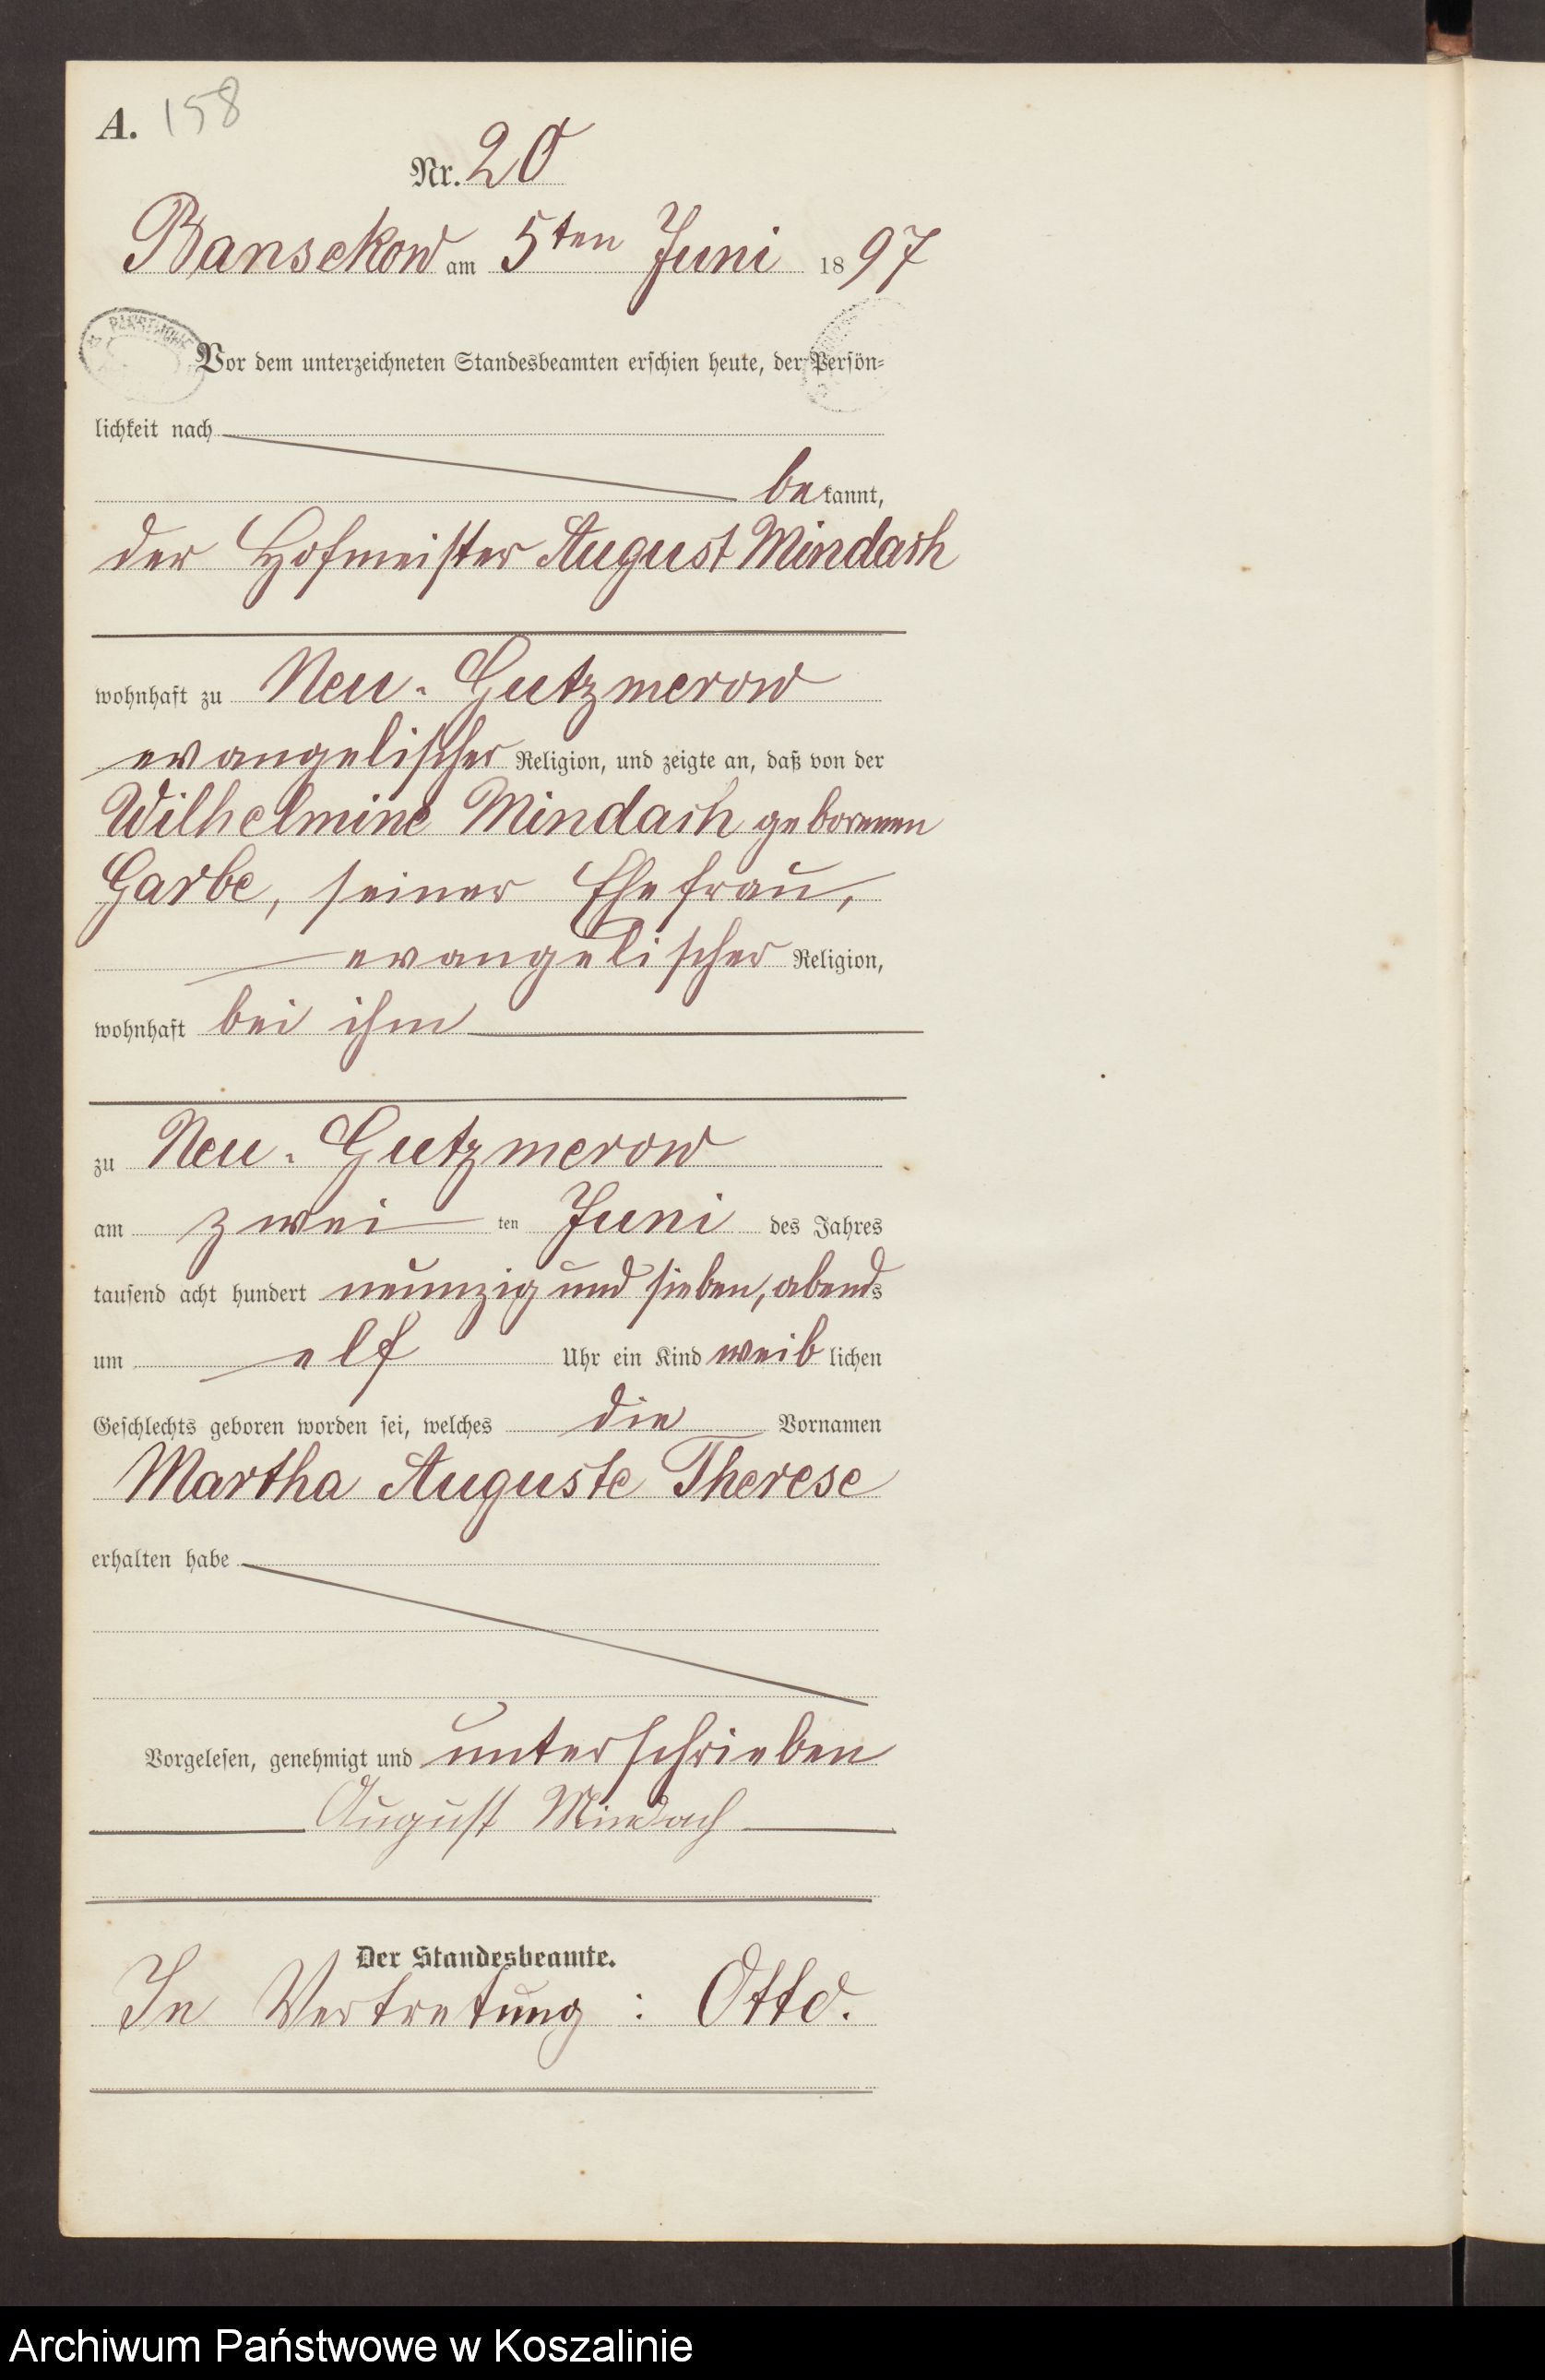 A. 158
Nr. 20
Bansekow am 5ten Juni 1897
Vor dem unterzeichneten Standesbeamten erschien heute, der Persön=
lichkeit nach
bekannt,
der Hofmeister August Mindach
wohnhaft zu Neu-Gutzmerow
evangelischer Religion, und zeigte an, daß von der
Wilhelmine Mindach geborenen
Garbe, seiner Ehefrau,
evangelischer Religion,
wohnhaft bei ihm
zu Neu-Gutzmerow
am zwei ten Juni des Jahres
tausend acht hundert neunzig und sieben, abends
um elf Uhr ein Kind weiblichen
Geschlechts geboren worden sei, welches die Vornamen
Martha Auguste Therese
erhalten habe
Vorgelesen, genehmigt und unterschrieben
August Mindach
Der Standesbeamte.
In Vertretung: Otto.
Archiwum Państwowe w Koszalinie